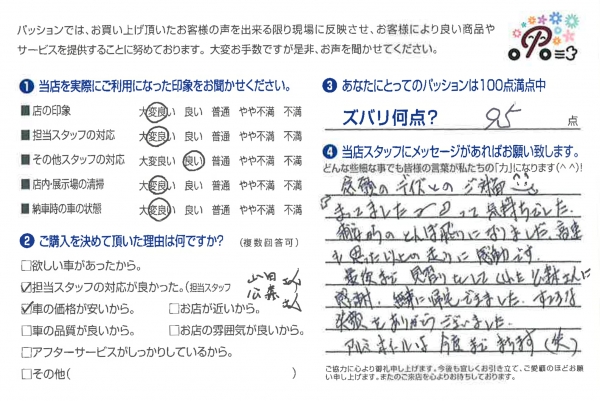 パッションでは、お買い上げ頂いたお客様の声を出来る限り現場に反映させ、お客様により良い商品や
サービスを提供することに努めております。大変お手数ですが是非、お声を聞かせてください。
❶ 当店を実際にご利用になった印象をお聞かせください。
■ 店の印象 大変良い 良い 普通 やや不満 不満
■ 担当スタッフの対応 大変良い 良い 普通 やや不満 不満
■ その他スタッフの対応 大変良い 良い 普通 やや不満 不満
■ 店内・展示場の清掃 大変良い 良い 普通 やや不満 不満
■ 納車時の車の状態 大変良い 良い 普通 やや不満 不満
❷ ご購入を決めて頂いた理由は何ですか? (複数回答可)
□欲しい車があったから。
☑担当スタッフの対応が良かった。(担当スタッフ 山田さん
広森さん
☑車の価格が安いから。 □お店が近いから。
□車の品質が良いから。 □お店の雰囲気が良いから。
□アフターサービスがしっかりしているから。
□その他( )
❸ あなたにとってのパッションは100点満点中
ズバリ何点? 95 点
❹ 当店スタッフにメッセージがあればお願い致します。
どんな些細な事でも皆様の言葉が私たちの「力」になります(^^)!
感動の
気持ちでした。
とんぼ なりました。
思った以上の走りに感動です。
最後まで見送りをしてくれた広森さんに
感謝。無事に帰宅できました。すてきな
ありがとうございました。
(笑)
ご協力に心より御礼申し上げます。今後も宜しくお引き立て、ご愛顧のほどお願い
申し上げます。またのご来店を心よりお待ちしております。